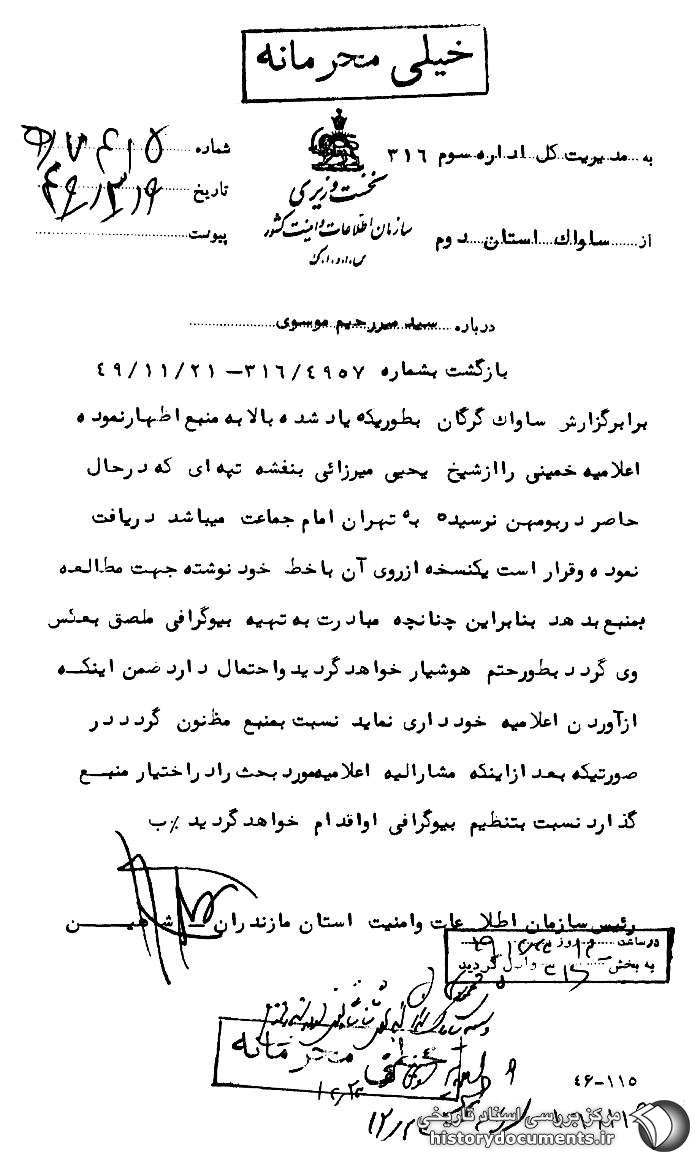 خیلی محرمانه
به مدیریت کل اداره سوم ۳۱۶
شماره
نخست وزیری
تاریخ
سازمان اطلاعات و امنیت کشور
از ساواک استان دوم
پیوست
س.ا.و.ا.ک
درباره سید میررحیم موسوی
بازگشت بشماره ۳۱۶/٤٩٥٧ – ٤٩/۱۱/۲۱
برابرگزارش ساواک گرگان بطوریکه یاد شده بالا به منبع اظهارنموده
اعلامیه خمینی را ازشیخ یحیی میرزائی بنفشه تپه ای که درحال
حاصر دربومهن نرسیده به تهران امام جماعت میباشد دریافت
نموده وقرار است یکنسخه ازروی آن باخط خود نوشته جهت مطالعه
بمنبع بدهد بنابراین چنانچه مبادرت به تهیه بیوگرافی ملصق بعکس
وی گردد بطورحتم هوشیار خواهدگردید واحتمال دارد ضمن اینکه
ازآوردن اعلامیه خودداری نماید نسبت بمنبع مظنون گردد در
صورتیکه بعد ازاینکه مشارالیه اعلامیهمورد بحث رادراختیار منبع
گذارد نسبت بتنظیم بیوگرافی اواقدام خواهدگردید ٪ب
رئیس سازمان اطلاعات وامنیت استان مازندران – شاهین
در ساعت روز
به بخش واصل گردید
خیلی محرمانه
٤٦-۱۱٥
مرکز بررسی اسناد تاریخی
historydocuments.ir